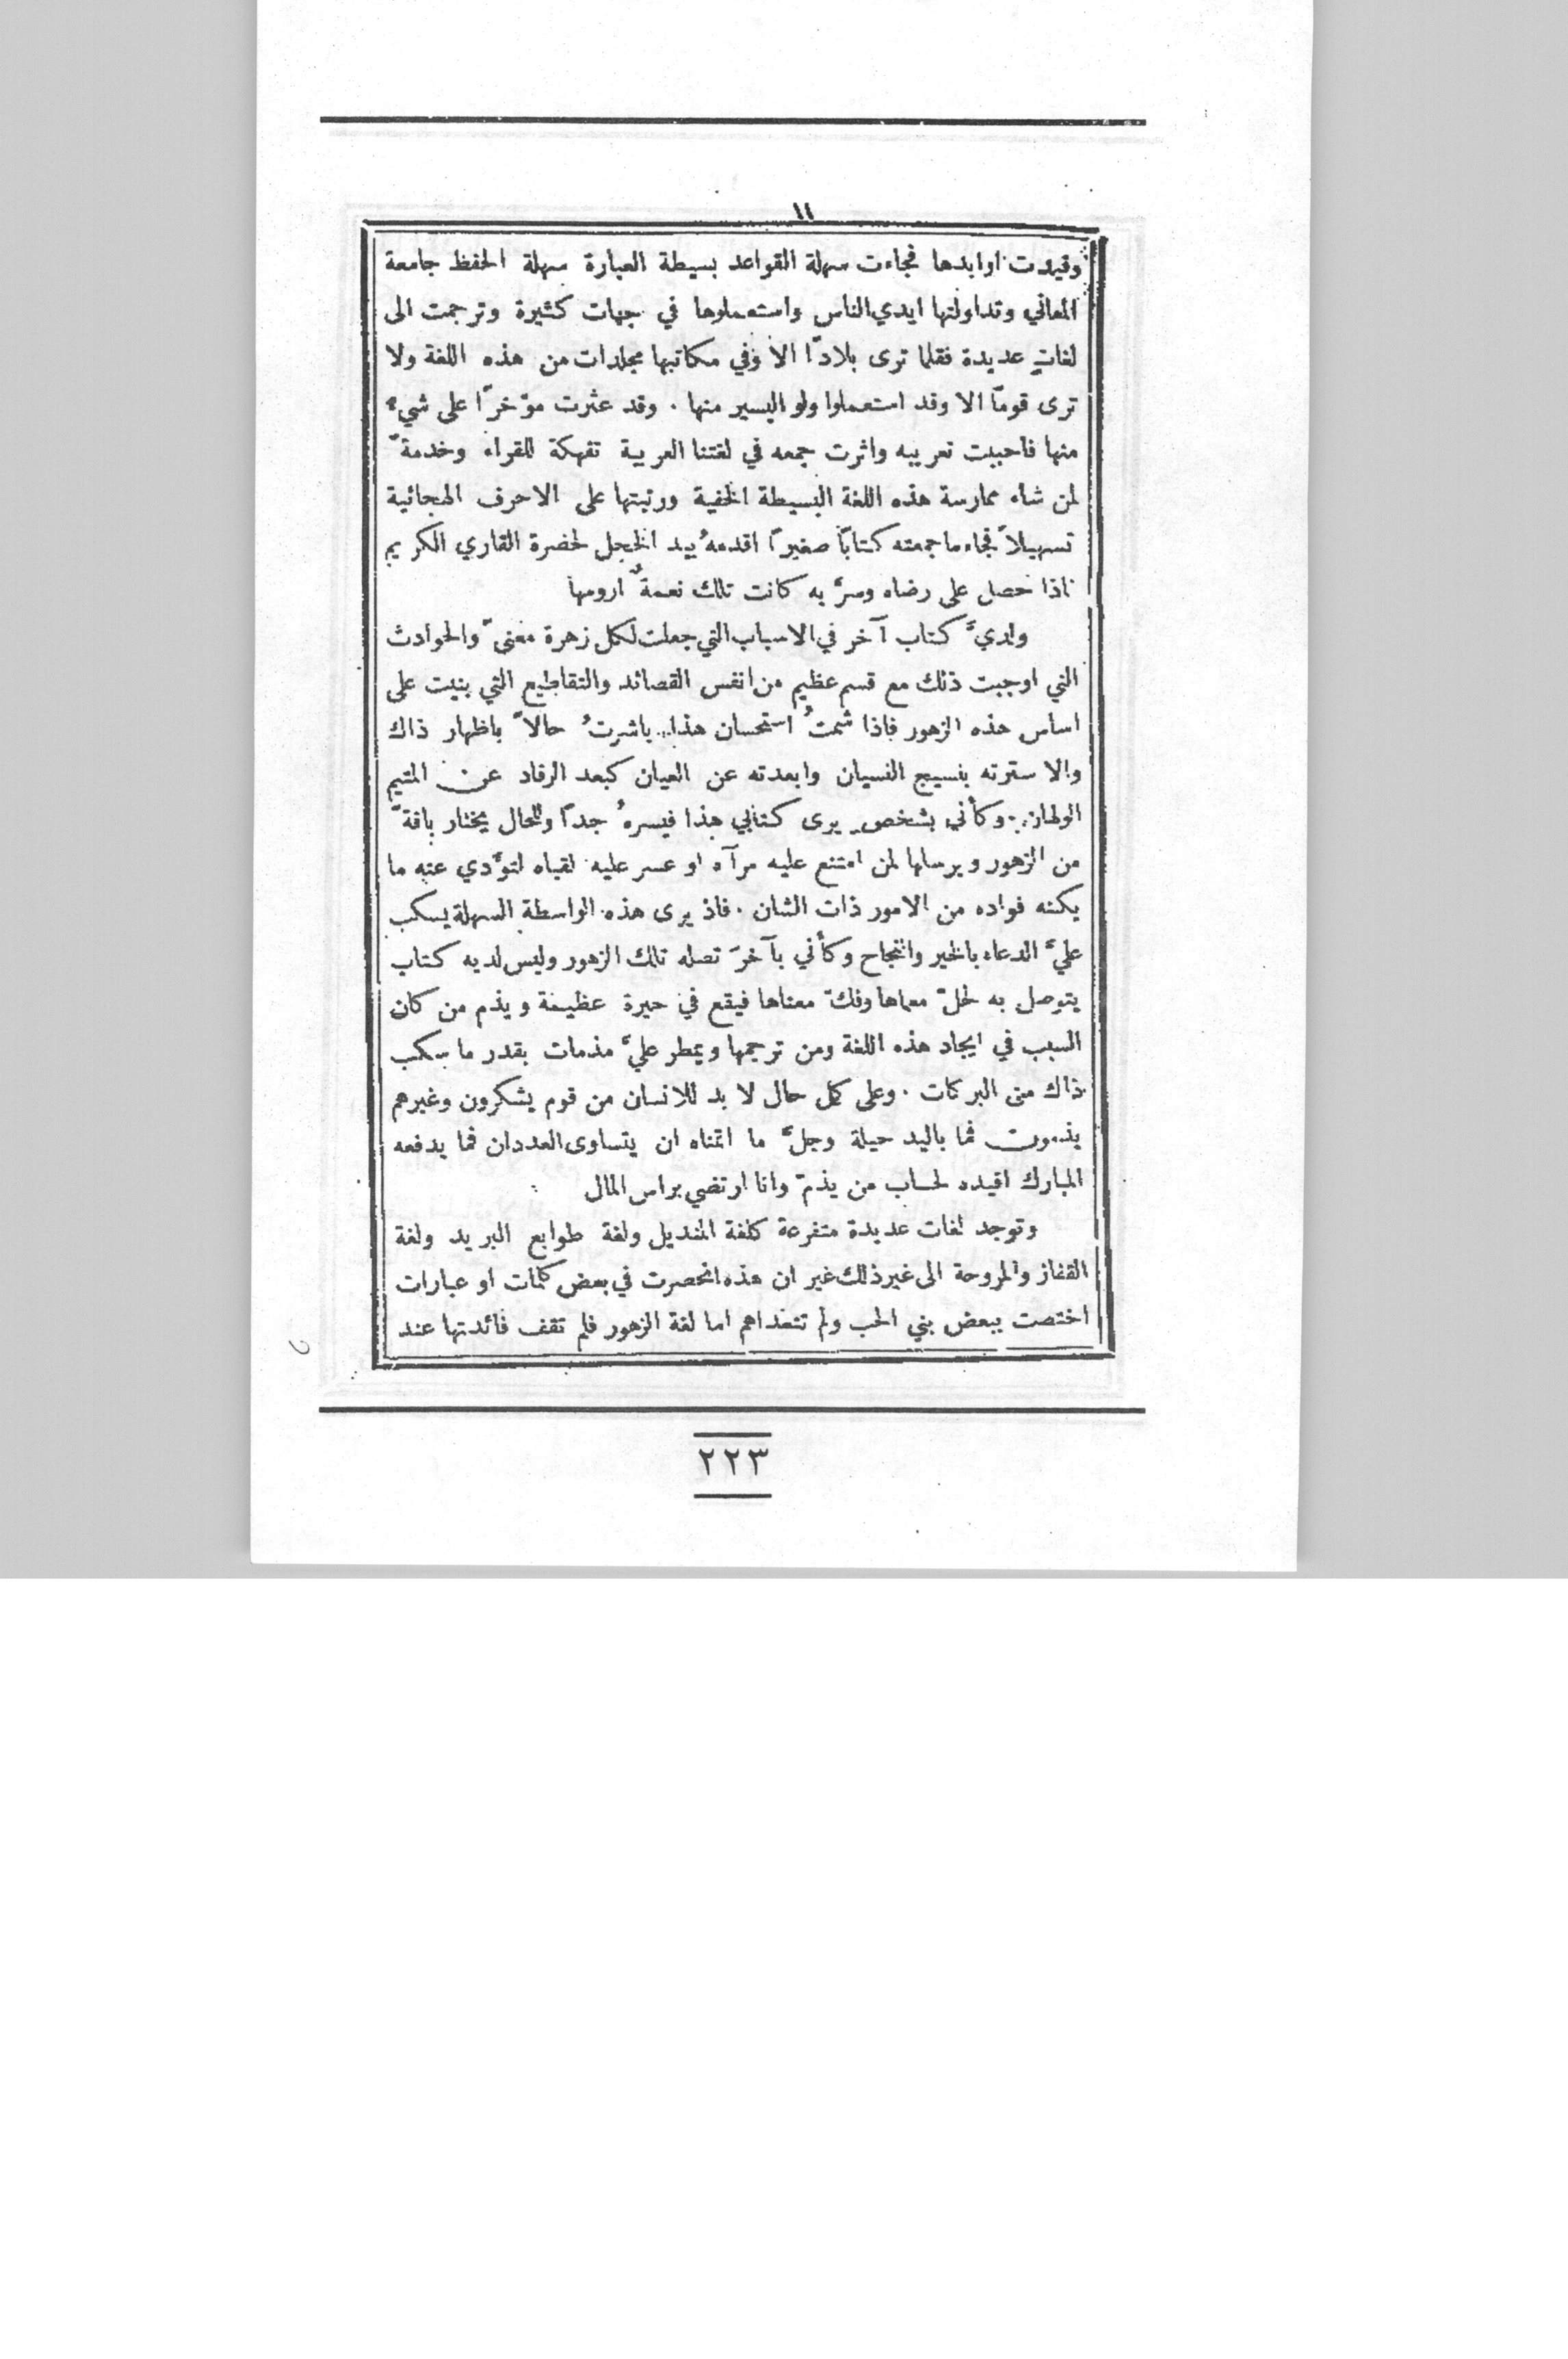 ١١
وقيدت اوابدها فجاءت سهلة القواعد بسيطة العبارة سهلة الحفظ جامعة
المعاني وتداولتها ايدي الناس واستعملوها في جهات كثيرة وترجمت الى
لغاتٍ عديدة فقلما ترى بلادًا الا وفي مكاتبها مجلدات من هذه اللغة ولا
ترى قومًا الا وقد استعملوا ولو اليسير منها . وقد عثرت مؤخرًا على شيء
منها فاحببت تعريبه واثرت جمعه في لغتنا العربية تفهكة للقراء وخدمةً
لمن شاء ممارسة هذه اللغة البسيطة الخفية ورتبتها على الاحرف الهجائية
تسهيلاً فجاء ما جمعته كتابًا صغيرًا اقدمهُ بيد الخجل لحضرة القاري الكريم
فاذا حصل على رضاه وسرَّ به كانت تلك نعمةٌ ارومها
ولديَّ كتاب آخر في الاسباب التي جعلت لكل زهرة معنىً والحوادث
التي اوجبت ذلك مع قسم عظيم من انفس القصائد والتقاطيع التي بنيت على
اساس هذه الزهور فاذا شمتُ استحسان هذا باشرتُ حالاً باظهار ذاك
والا سترته بنسيج النسيان وابعدته عن العيان كبعد الرقاد عن المتيم
الولهان . وكأني بشخص يرى كتابي هذا فيسرهُ جدًا وللحال يختار باقةً
من الزهور ويرسلها لمن امتنع عليه مرآه او عسر عليه لقياه لتؤدي عنه ما
يكنه فواده من الامور ذات الشان . فاذ يرى هذه الواسطة السهلة يسكب
عليَّ الدعاء بالخير والنجاح وكأني بآخرَ تصله تلك الزهور وليس لديه كتاب
يتوصل به لحلّ معماها وفكّ معناها فيقع في حيرة عظيمة ويذم من كان
السبب في ايجاد هذه اللغة ومن ترجمها ويمطر عليَّ مذمات بقدر ما سكب
ذاك من البركات . وعلى كل حال لا بد للانسان من قوم يشكرون وغيرهم
يذمون فما باليد حيلة وجلَّ ما اتمناه ان يتساوى العددان فما يدفعه
المبارك اقيده لحساب من يذمّ وانا ارتضي براس المال
وتوجد لغات عديدة متفرعة كلغة المنديل ولغة طوابع البريد ولغة
القفاز والمروحة الى غير ذلك غير ان هذه انحصرت في بعض كلمات او عبارات
اختصت ببعض بني الحب ولم تتعداهم اما لغة الزهور فلم تقف فائدتها عند
٢٢٣